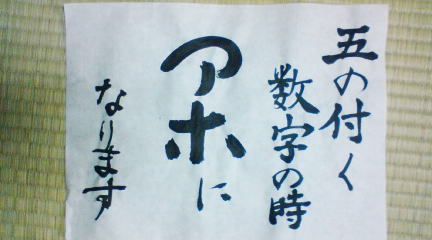 五の付く
数字の時
アホに
なります